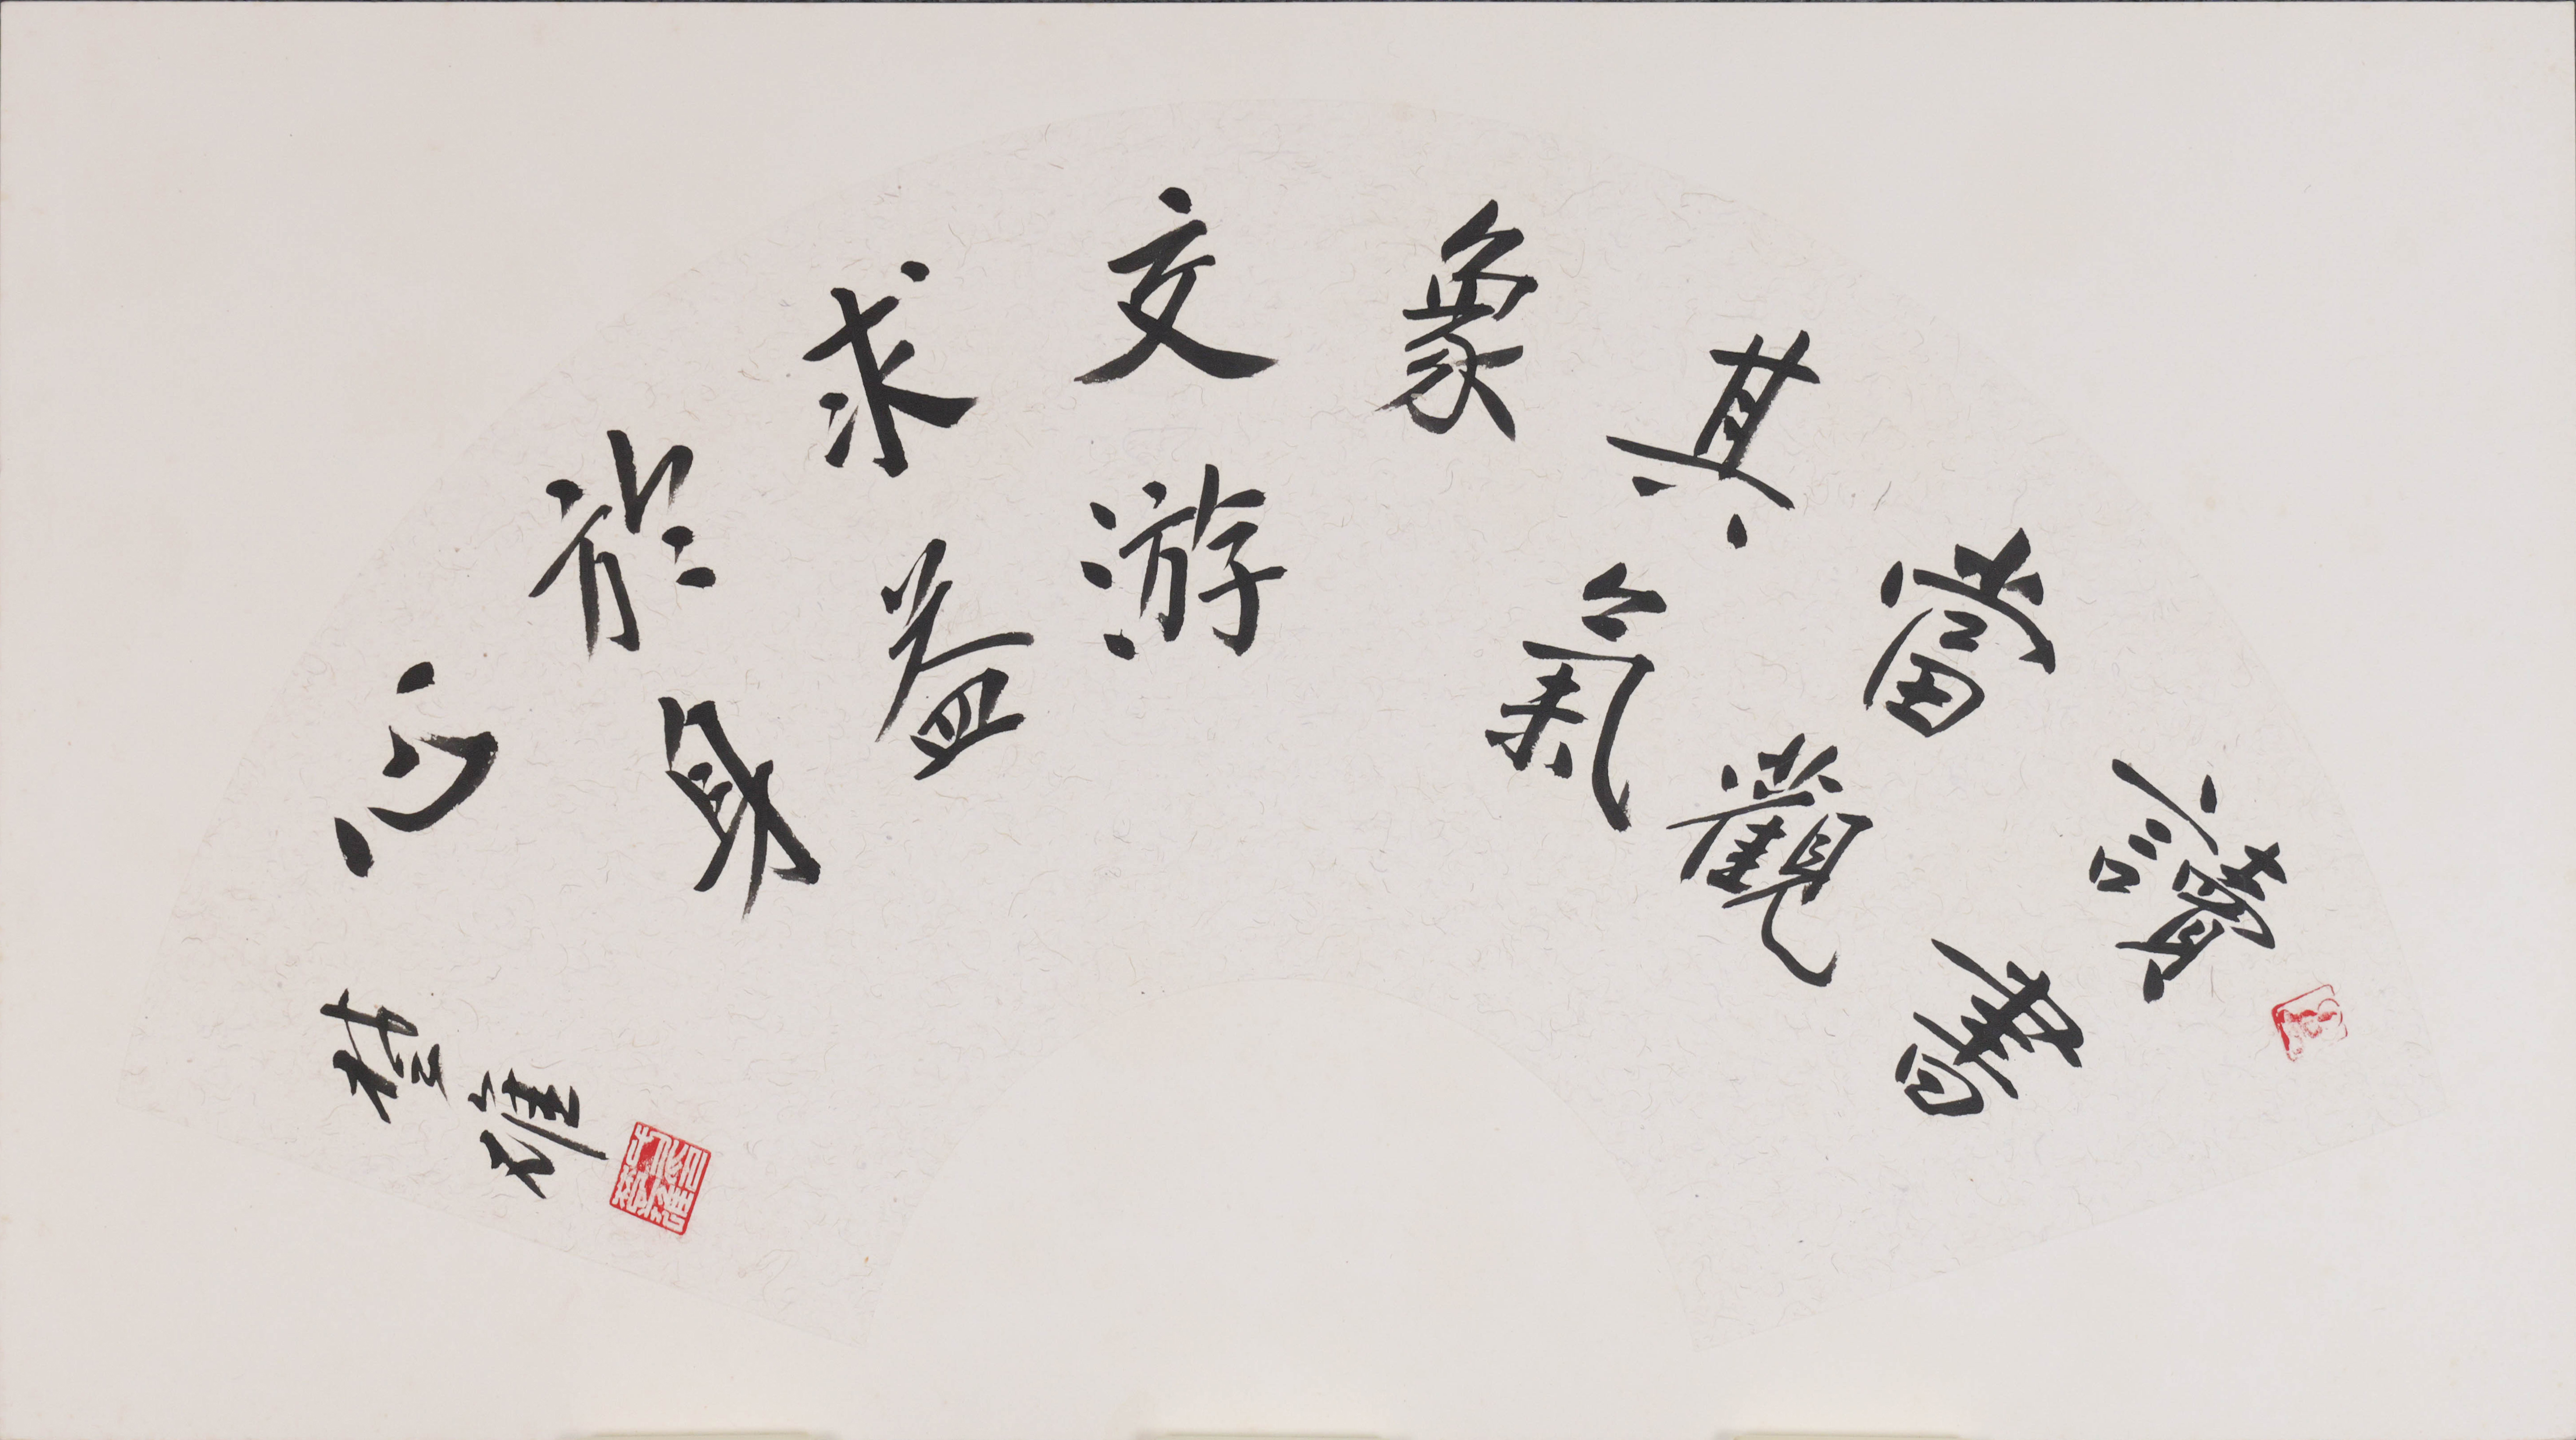 讀書
當觀
其氣
象
交游
求益
於身
心